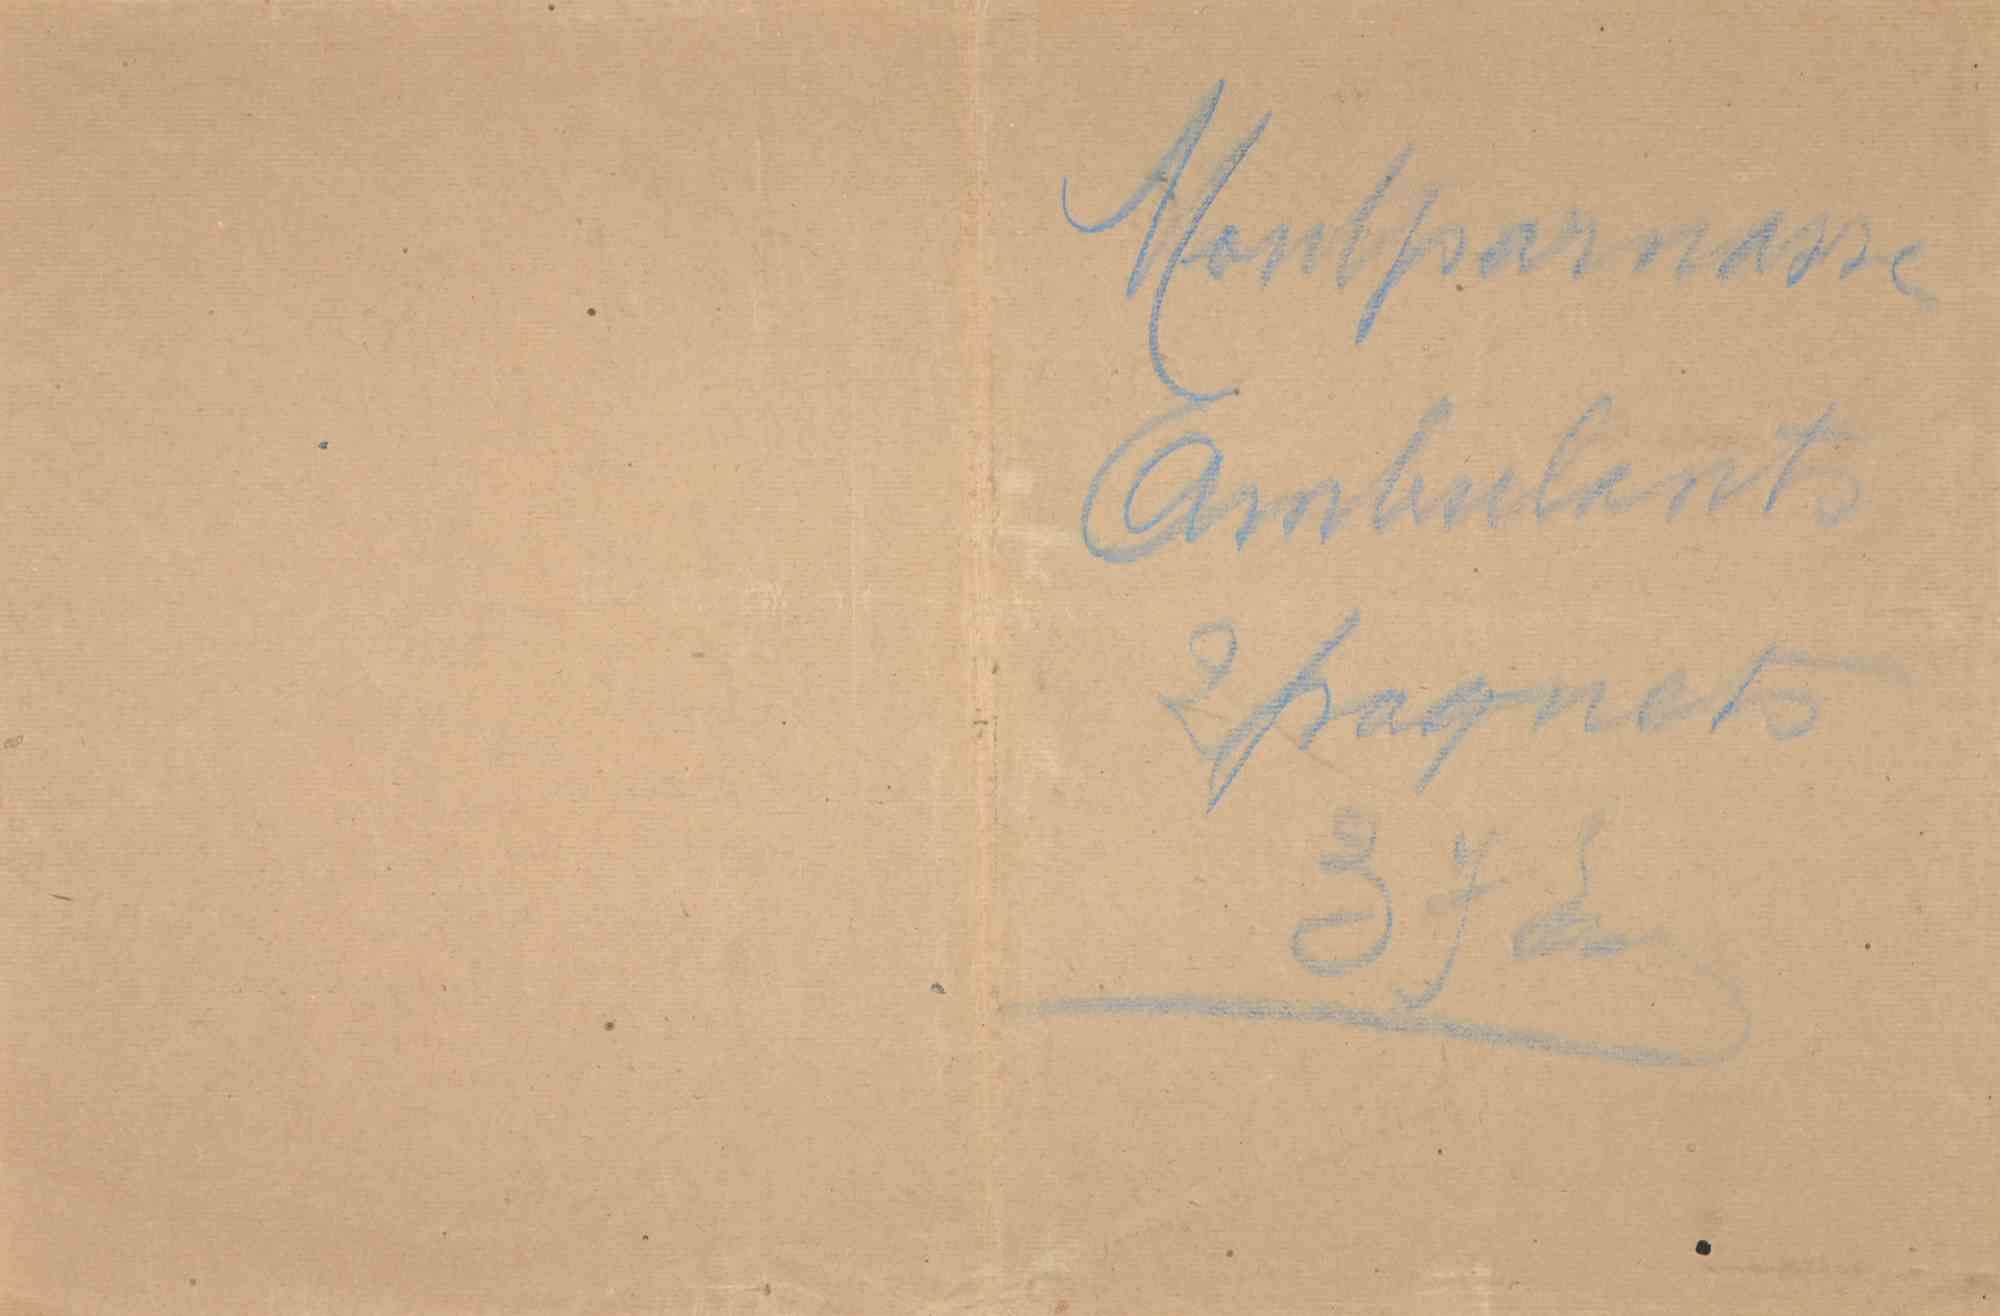 Montparnasse
Ambulants
2 paquets
3 f